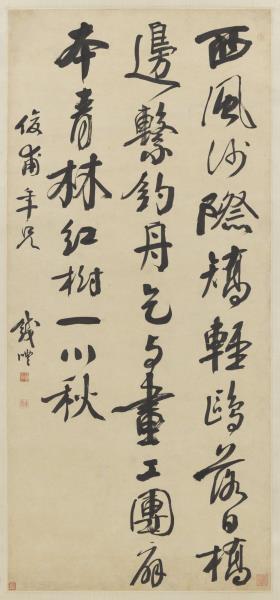 西風沙際矯輕鷗落日橋
邊繫釣舟乞与畫工團扇
本青林紅樹一川秋
俊甫年兄
錢灃